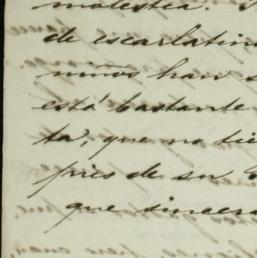 molestia.
de escarlatina
niños han s
está bastante
ta, que no tie
pués de su
que sincera